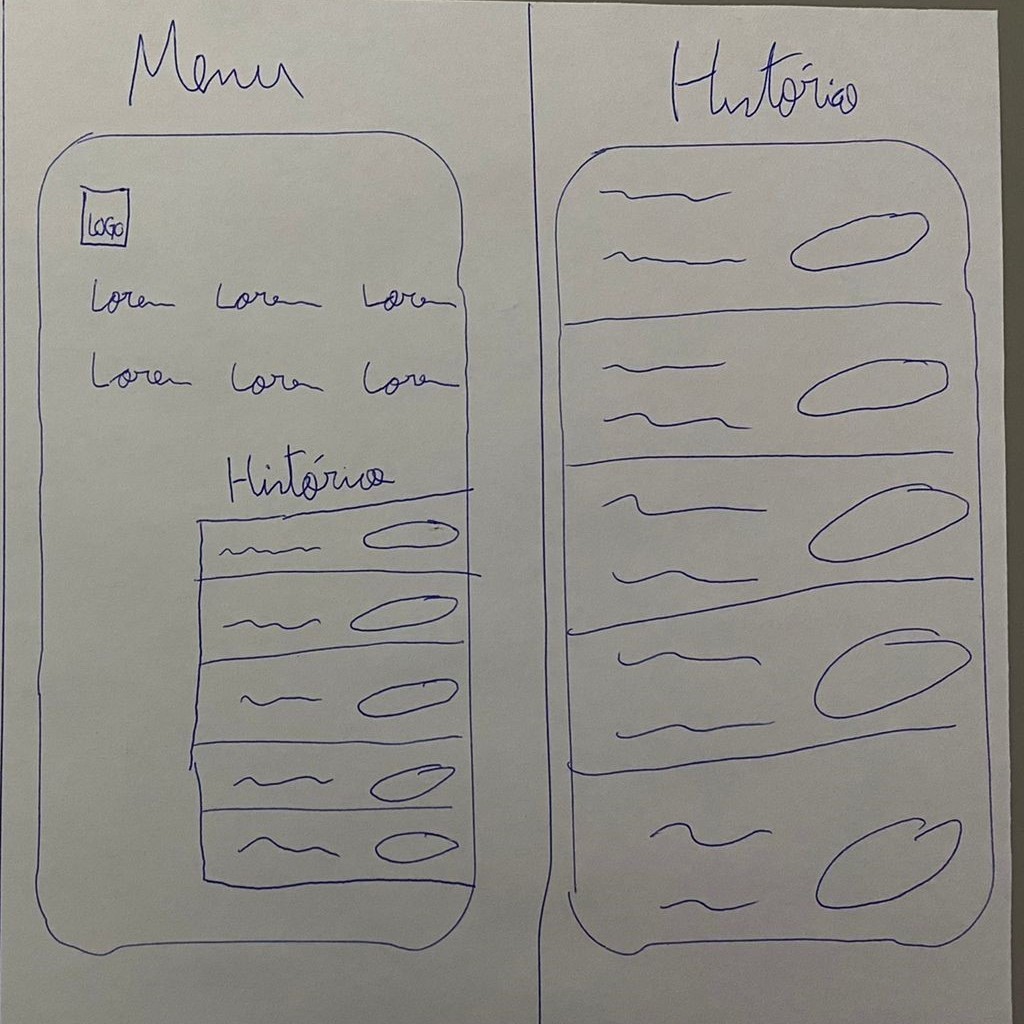 Menu
LOGO
Lorem Lorem Lorem
Lorem Lorem Lorem
Histórico
Histórico